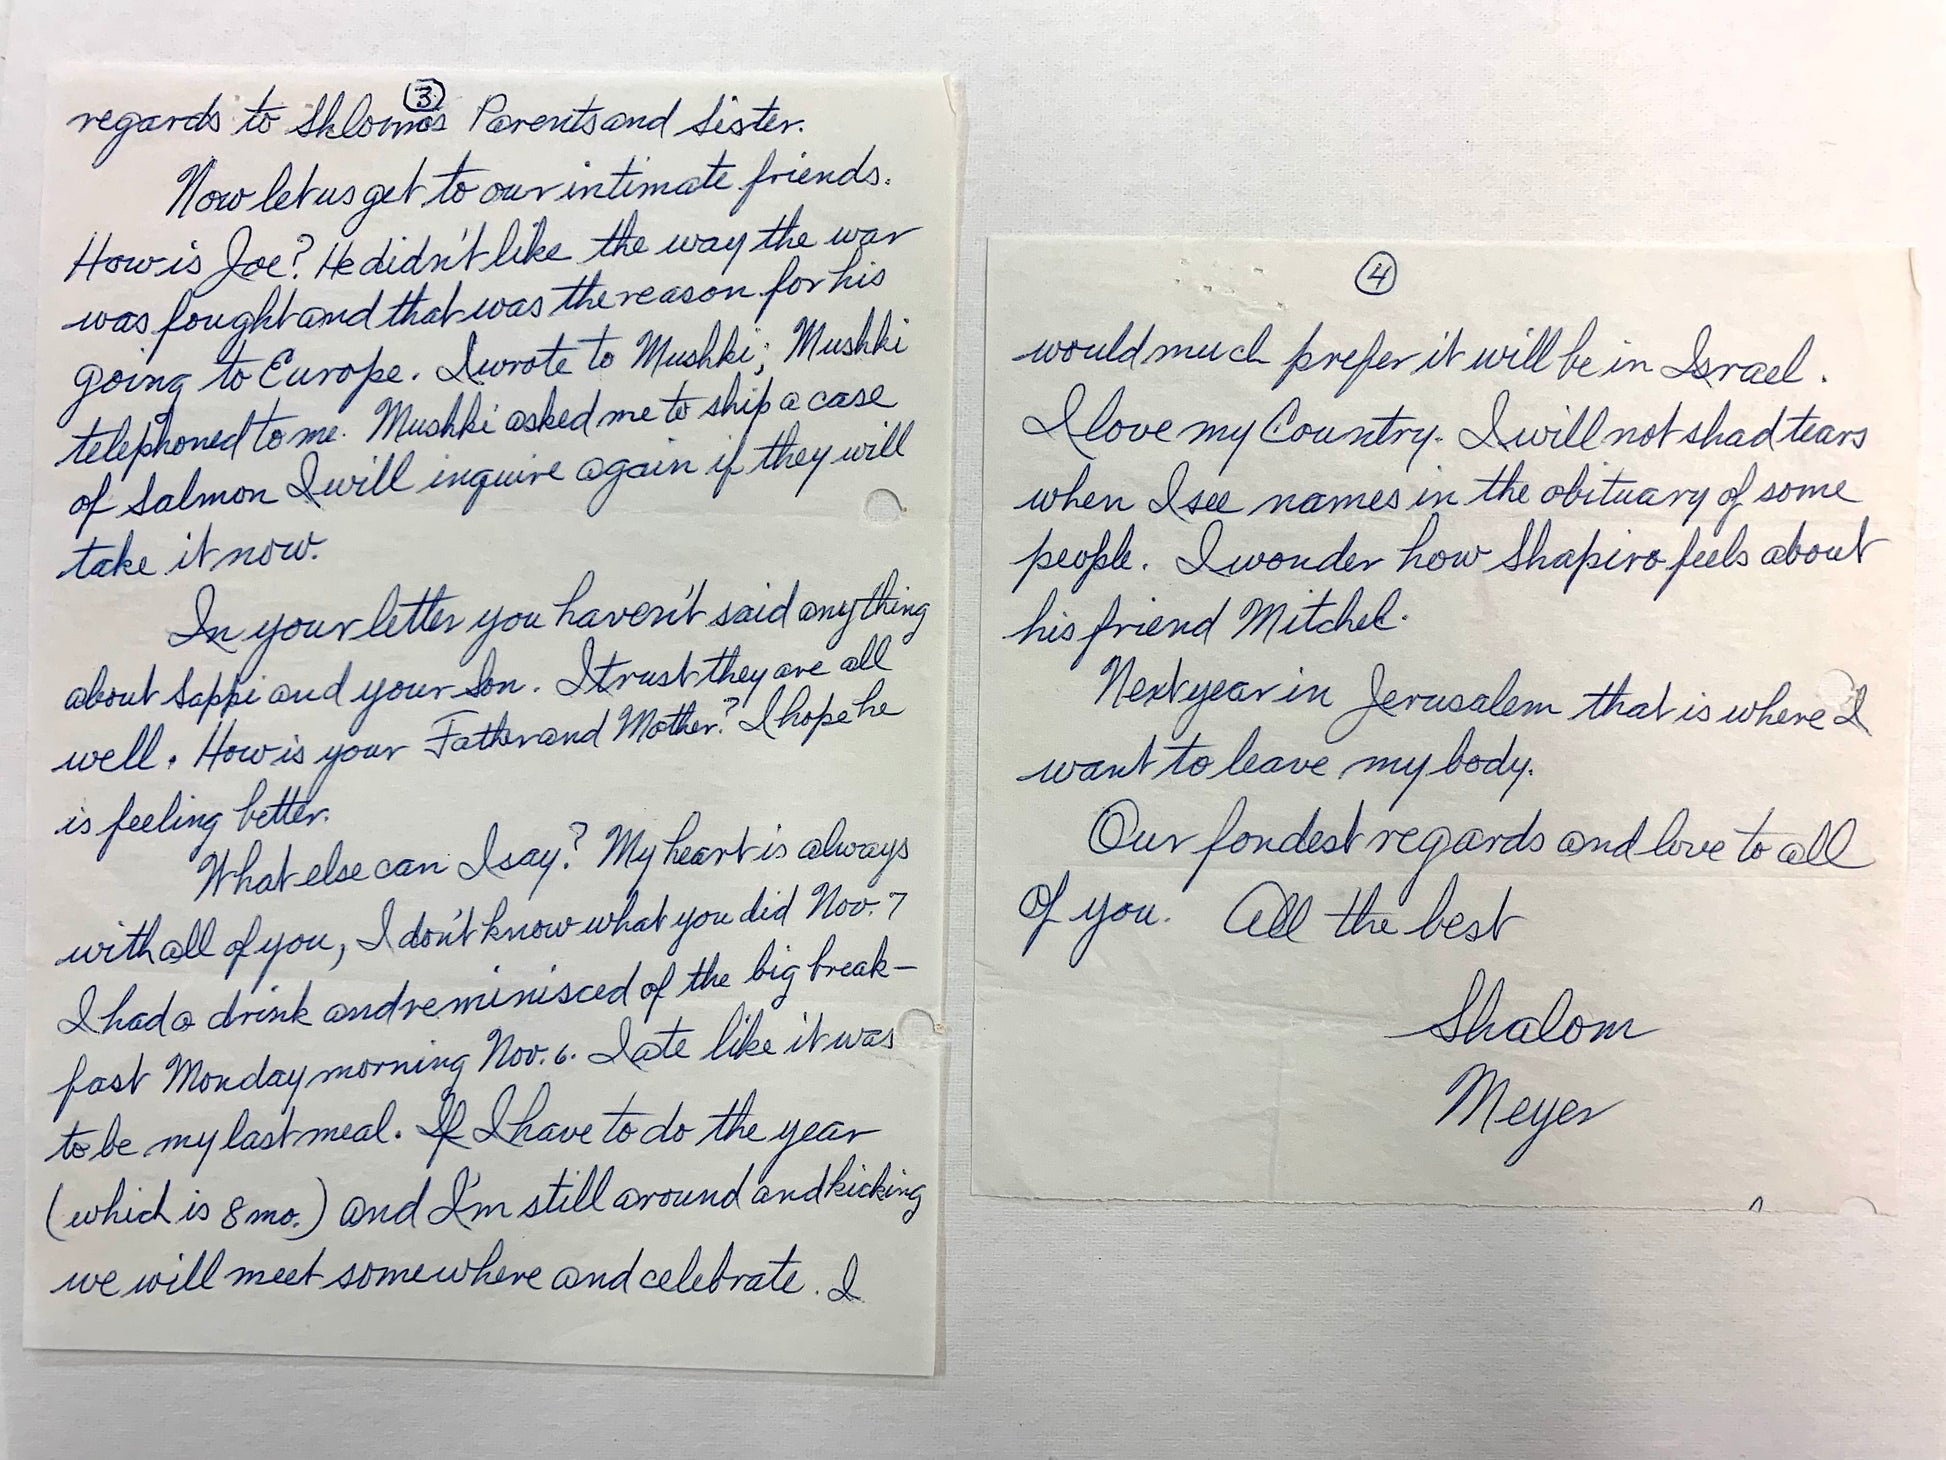 ③
regards to Shlomo's Parents and Sister.
Now let us get to our intimate friends.
How is Joe? He didn't like the way the war
was fought and that was the reason for his
going to Europe. I wrote to Mushki; Mushki
telephoned to me. Mushki asked me to ship a case
of Salmon I will inquire again if they will
take it now.
In your letter you haven't said anything
about Sappi and your Son. I trust they are all
well. How is your Father and Mother? I hope he
is feeling better.
What else can I say? My heart is always
with all of you, I don't know what you did Nov. 7
I had a drink and reminisced of the big break-
fast Monday morning Nov. 6. I ate like it was
to be my last meal. If I have to do the year
(which is 8 mo.) and I'm still around and kicking
we will meet somewhere and celebrate. I
④
would much prefer it will be in Israel.
I love my Country. I will not shad tears
when I see names in the obituary of some
people. I wonder how Shapiro feels about
his friend Mitchel.
Next year in Jerusalem that is where I
want to leave my body.
Our fondest regards and love to all
of you. All the best
Shalom
Meyer